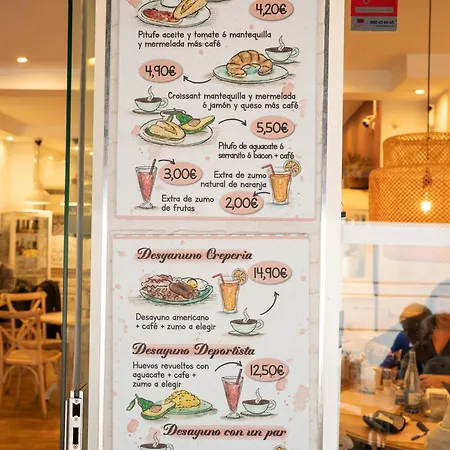 4,20€
Pitufo aceite y tomate ó mantequilla
y mermelada más café
4,90€
Croissant mantequilla y mermelada
ó jamón y queso más café
5,50€
Pitufo de aguacate ó
serranito ó bacon + café
3,00€
Extra de zumo
natural de naranja
Extra de zumo
de frutas
2,00€
Desyanuno Creperia
14,90€
Desayuno americano
+ café + zumo a elegir
Desayuno Deportista
Huevos revueltos con
aguacate + cafe +
zumo a elegir
12,50€
Desayuno con un par